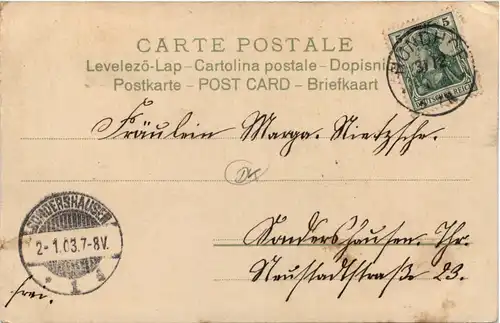 CARTE POSTALE
Levelezö-Lap – Cartolina postale – Dopisni
Postkarte – POST CARD – Briefkaart
5
31.12
DEUTSCHES REICH
Fräulein Marga. Nietzsche.
SONDERSHAUSEN
2-1.03.7-8V.
1
Sondershausen. Thr.
Neustadtstraße 23.
frei.